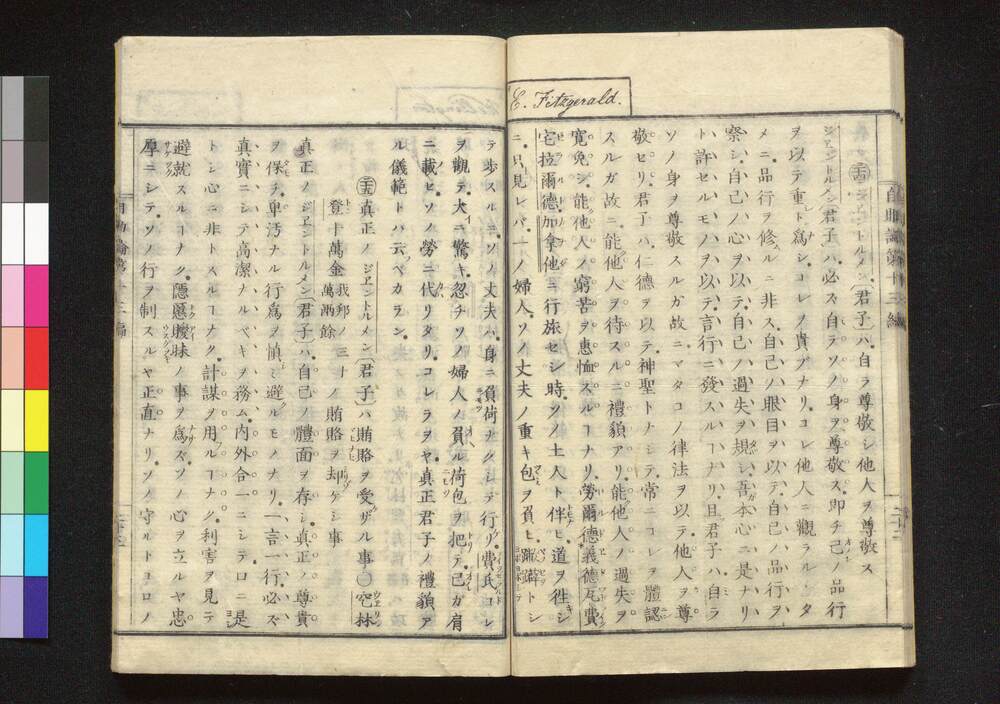 E. Fitzgerald.
㊁ジェントルメン(君子)ハ自ラ尊敬シ他人ヲ尊敬ス
ジェントルメン(君子)ハ必ス自ラソノ身ヲ尊敬ス即チ己ノ品行
ヲ以テ重ト為シコレヲ貴ブナリコレ他人ニ觀ラルヽタ
メニ品行ヲ修ルニ非ス自己ノ眼目ヲ以テ自己ノ品行ヲ
察シ自己ノ心ヲ以テ自己ノ過失ヲ規シ吾本心ニ是ナリ
ト許セルモノハヲ以テ言行ニ發スルヿナリ且君子ハ自ラ
ソノ身ヲ尊敬スルガ故ニマタコノ律法ヲ以テ他人ヲ尊
敬セリ君子ハ仁德ヲ以テ神聖トナシテ常ニコレヲ體認
スルガ故ニ能他人ヲ待スルニ禮貌アリ能他人ノ過失ヲ
寛免シ能他人ノ窮苦ヲ惠恤スルヿナリ勞爾德義德瓦費
宅拉爾德加拿他ニ行旅セシ時ソノ土人ト伴ヒ道ヲ往シ
ニ只見レバ一ノ婦人ソノ丈夫ノ重キ包ヲ負ヒ蹣跚トシ
テ歩スルニソノ丈夫ハ身ニ負荷ナクシテ行リ費氏コレ
ヲ觀テ大ニ驚キ忽チソノ婦人ノ負ル荷包ヲ把テ己ガ肩
ニ載ヒソノ勞ニ代リタリコレラヲヤ真正君子ノ禮貌ア
ル儀範トハ云ベカラン
真正ノジェントルメン(君子)ハ賄賂ヲ受ザル事〇空林
登十萬金我邦ノ三十萬兩餘ノ賄賂ヲ却ケシ事
真正ノジェントルメン(君子)ハ自己ノ體面ヲ存シ真正ノ尊貴
ヲ保チ卑汚ナル行為ヲ慎ミ避ルモノナリ一言一行必ズ
真實ニシテ高潔ナルベキヲ務ム内外合一ニシテロニ是
トシ心ニ非トスルヿナク計謀ヲ用ルヿナク利害ヲ見テ
避就スルヿナク隱慝曖昧ノ事ヲ為ズソノ心ヲ立ルヤ忠
厚ニシテソノ行ヲ制スルヤ正直ナリソノ守ルトコロノ